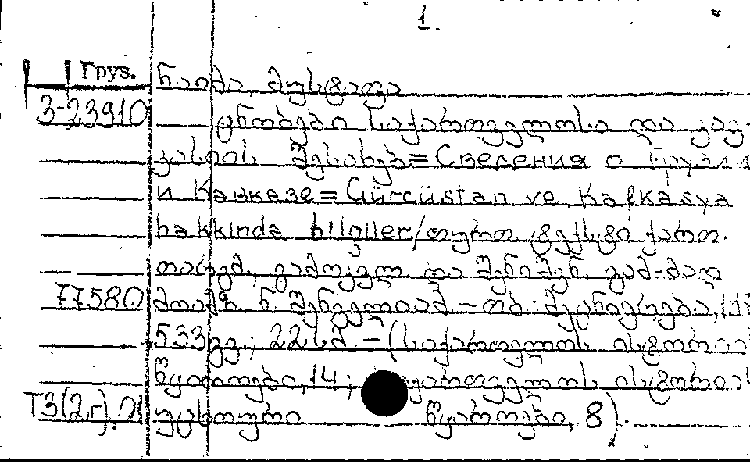 1.
Груз. ნაიმა, მუსტაფა
3-23910 ცნობები საქართველოსა და კავ-
კასიის შესახებ = Сведения о Грузии
и Кавказе = Gürcüstan ve Kafkasya
hakkinda bilgiler/თურქ. ტექსტი ქართ.
თარგმ., გამოკვლ. და შენიშვნ. გამ-მად
77580 მოამზ. ნ. შენგელიამ – თბ.: მეცნიერება,
533გვ.; 22სმ – (საქართველოს ისტორიის
წყაროები, 14; საქართველოს ისტორიის
Т3(2г) უცხოური წყაროები, 8).